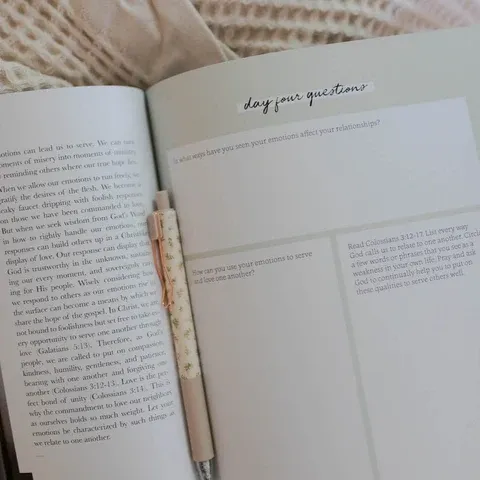 emotions can lead us to serve. We can turn
moments of misery into moments of ministry,
reminding others where our true hope lies.
When we allow our emotions to run freely, we
gratify the desires of the flesh. We become a
leaky faucet dripping with foolish responses
on those we have been commanded to love.
But when we seek wisdom from God's Word
in how to rightly handle our emotions, our
responses can build others up in a Christlike
display of love. Our response can display that
God is trustworthy in the unknown, sustain-
ing our every moment, and sovereignly car-
ing for His people. Wisely considering how
we respond to others as our emotions rise to
the surface can become a means by which we
share the hope of the gospel. In Christ, we are
not bound to foolishness but set free to take ev-
ery opportunity to serve one another through
love (Galatians 5:13). Therefore, as God's
people, we are called to put on compassion,
kindness, humility, gentleness, and patience,
bearing with one another and forgiving one
another (Colossians 3:12-13). Love is the per-
fect bond of unity (Colossians 3:14). This is
why the commandment to love our neighbors
as ourselves holds so much weight. Let your
emotions be characterized by such things as
we relate to one another.
day four questions
In what ways have you seen your emotions affect your relationships?
How can you use your emotions to serve
and love one another?
Read Colossians 3:12-17. List every way
God calls us to relate to one another. Circle
a few words or phrases that you see as a
weakness in your own life. Pray and ask
God to continually help you to put on
these qualities to serve others well.